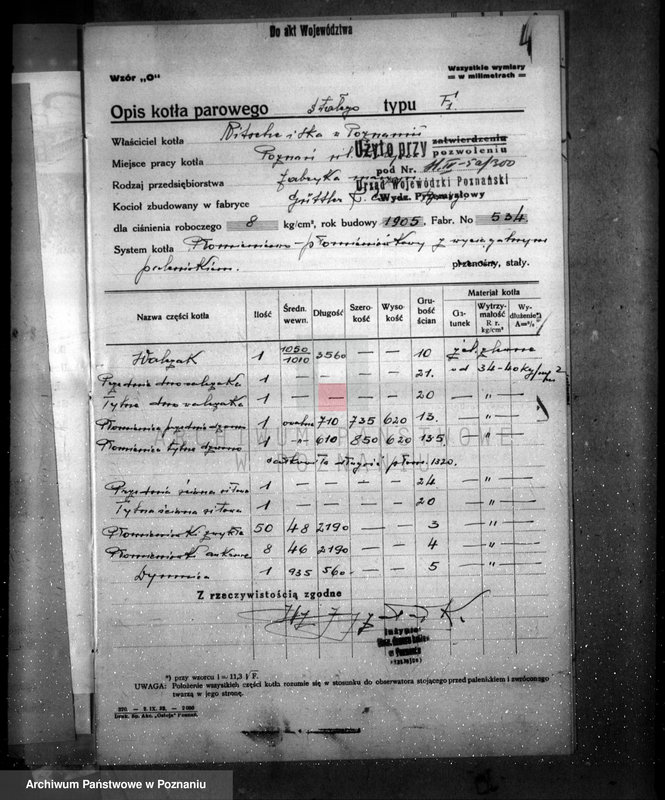 Do akt Województwa
4
Wzór „O"
Wszystkie wymiary
= w milimetrach =
Opis kotła parowego stałego typu F1
Właściciel kotła Nitsche i Ska w Poznaniu
Użyto przy zatwierdzeniu
pozwoleniu
Miejsce pracy kotła Poznań
pod Nr.
Rodzaj przedsiębiorstwa Fabryka maszyn
Urząd Wojewódzki Poznański
Wydz. Przemysłowy
Kocioł zbudowany w fabryce Güttler
dla ciśnienia roboczego 8 kg/cm², rok budowy 1905. Fabr. No 534
System kotła Płomienicowo-płomieniówkowy z wyciągalnym
paleniskiem. przenośny, stały.
Nazwa części kotła Ilość Średn. wewn. Długość Szerokość Wysokość Grubość ścian Materjał kotła
Gatunek Wytrzymałość R r. kg/cm² Wydłużenie*) A=%
Walczak 1 1050 1010 3560 — — 10 żel. zlewne
Przednie dno walczaka 1 — — — — 21. od 34-40 kg/
Tylne dno walczaka 1 — — — — 20 — „ —
Płomienica przednie dzwono 1 owalne 710 735 620 13. — „ —
ARCHIWUM PAŃSTWOWE
W POZNANIU
Płomienica tylne dzwono 1 „ 610 850 620 13.5 — „ —
całkowita długość płom. 1320.
Przednia ściana sitowa 1 — — — — 24 — „ —
Tylna ściana sitowa 1 — — — — 20 — „ —
Płomieniówki zwykłe 50 48 2190 — — 3 — „ —
Płomieniówki ankrowe 8 46 2190 — — 4 — „ —
Dymnica 1 935 560 — — 5 — „ —
Z rzeczywistością zgodne
w Poznaniu
*) przy wzorcu l = 11,3 √F.
UWAGA: Położenie wszystkich części kotła rozumie się w stosunku do obserwatora stojącego przed paleniskiem i zwróconego
twarzą w jego stronę.
270. — 2. IX. 33. — 2 000
Druk. Sp. Akc. „Ostoja" Poznań.
Archiwum Państwowe w Poznaniu